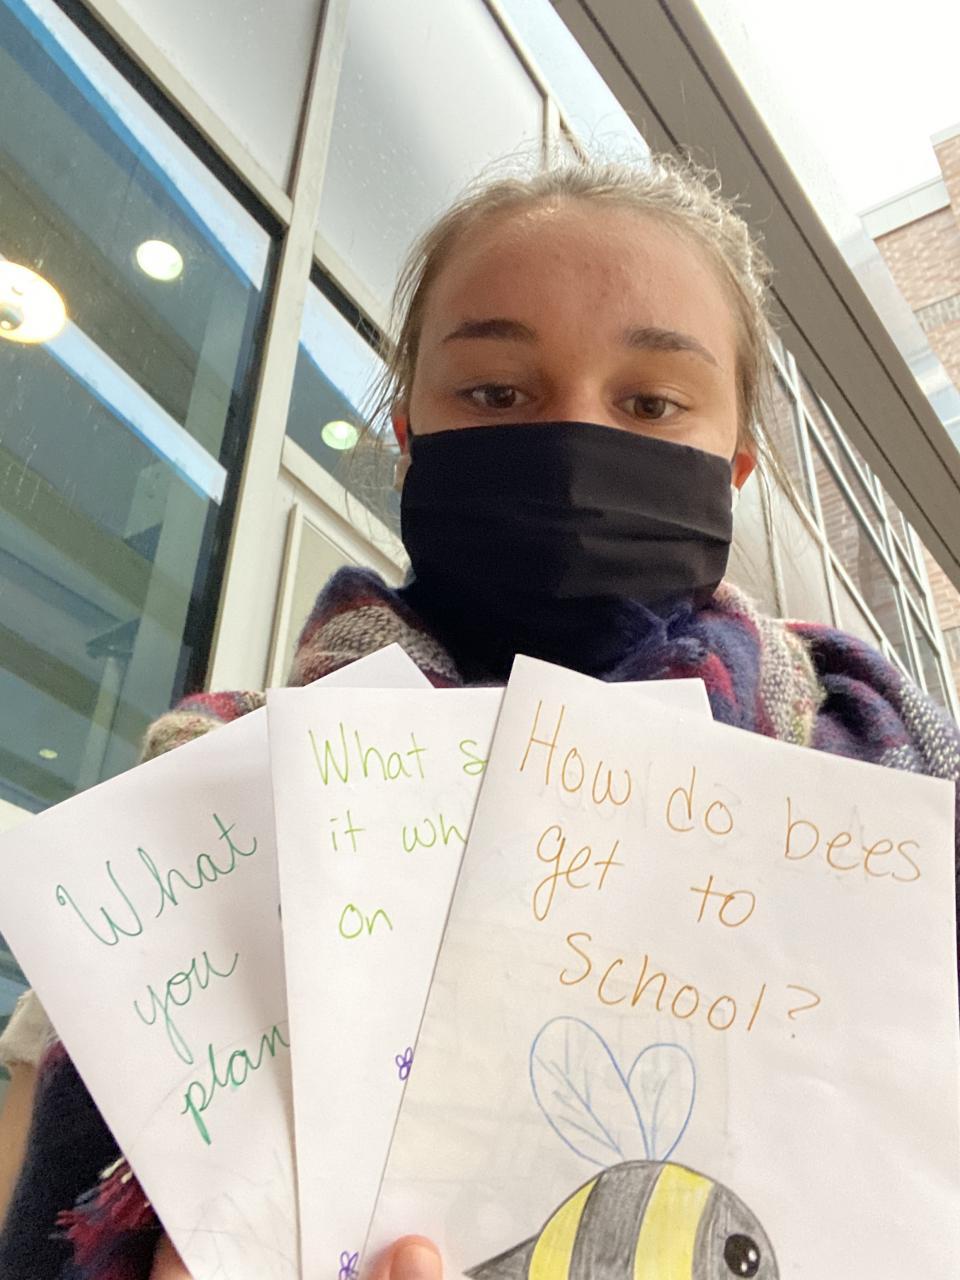 What
you
plan
What s
it wh
on
How do bees
get to
school?